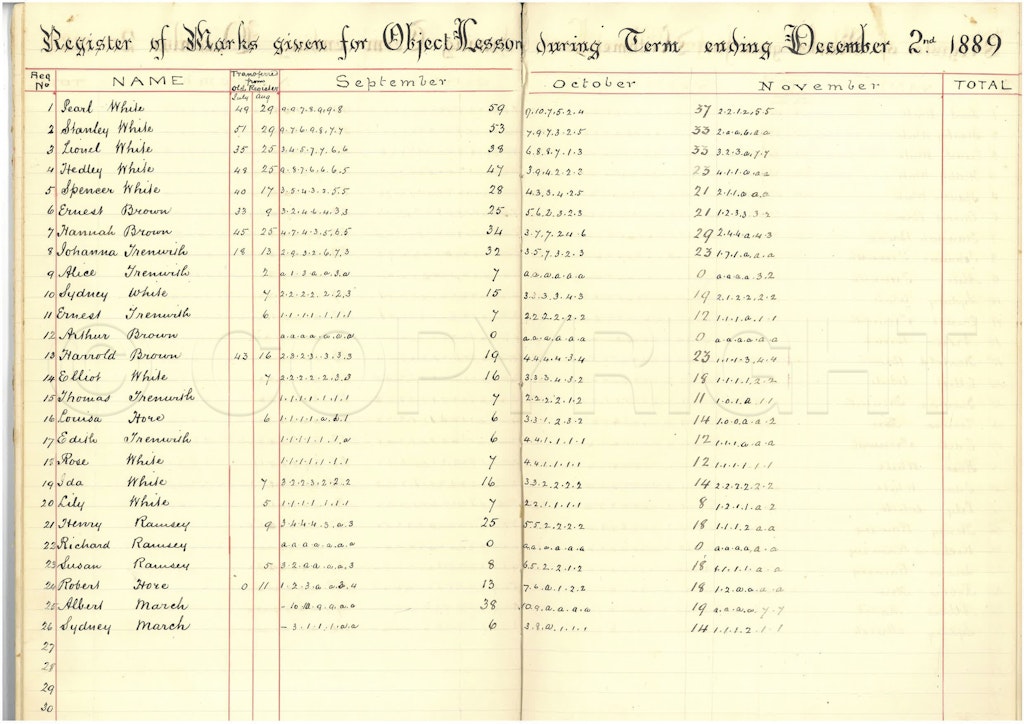 Register of Marks given for Object Lesson during Term ending December 2nd 1889
Reg No NAME Transferred from Old Register July Aug September October November TOTAL
1 Pearl White 49 29 9.9.7.8.9.9.8 59 9.10.7.5.2.4 37 2.2.1.2.5.5
2 Stanley White 51 29 9.7.6.9.8.7.7 53 7.9.7.3.2.5 33 2.a.a.6.a.a
3 Lionel White 35 25 3.4.5.7.7.6.6 38 6.8.8.7.1.3 33 3.2.3.a.7.7
4 Hedley White 48 25 9.8.7.6.6.6.5 47 3.9.4.2.2.2 23 4.1.1.a.a.a
5 Spencer White 40 17 3.5.4.3.2.5.5 28 4.3.3.4.2.5 21 2.1.1.a.a.a
6 Ernest Brown 33 9 3.2.4.6.4.3.3 25 5.6.2.3.2.3 21 1.2.3.3.3.2
7 Hannah Brown 45 25 4.7.4.3.5.6.5 34 3.7.7.2.4.6 29 2.4.4.a.4.3
8 Johanna Trenwith 18 13 2.9.3.2.6.7.3 32 3.5.7.3.2.3 23 1.7.1.a.a.a
9 Alice Trenwith 2 a.1.3.a.a.3.a 7 a.a.a.a.a.a 0 a.a.a.a.3.2
10 Sydney White 7 2.2.2.2.2.2.3 15 3.3.3.3.4.3 19 2.1.2.2.2.2
11 Ernest Trenwith 6 1.1.1.1.1.1.1 7 2.2.2.2.2.2 12 1.1.1.a.1.1
12 Arthur Brown a.a.a.a.a.a.a 0 a.a.a.a.a.a 0 a.a.a.a.a.a
13 Harrold Brown 43 16 2.3.2.3.3.3.3 19 4.4.4.4.3.4 23 1.1.1.3.4.4
14 Elliot White 7 2.2.2.2.2.3.3 16 3.3.3.4.3.2 18 1.1.1.1.2.2
15 Thomas Trenwith 1.1.1.1.1.1.1 7 2.2.2.2.1.2 11 1.0.1.a.1.1
16 Louisa Hore 6 1.1.1.1.a. .1 6 3.3.1.2.3.2 14 1.0.0.a.a.2
17 Edith Trenwith 1.1.1.1.1.1.a 6 4.4.1.1.1.1 12 1.1.1.a.a.a
18 Rose White 1.1.1.1.1.1.1 7 4.4.1.1.1.1 12 1.1.1.1.1.1
19 Ida White 7 3.2.2.3.2.2.2 16 3.3.2.2.2.2 14 2.2.2.2.2.2
20 Lily White 5 1.1.1.1.1.1.1 7 2.2.1.1.1.1 8 1.2.1.1.a.2
21 Henry Ramsey 9 3.4.4.4.3.a.3 25 5.5.2.2.2.2 18 1.1.1.2.a.a
22 Richard Ramsey a.a.a.a.a.a.a 0 a.a.a.a.a.a 0 a.a.a.a.a.a
23 Susan Ramsey 5 3.2.a.a.a.a.3 8 6.5.2.2.1.2 18 1.1.1.1.a.a
24 Robert Hore 0 11 1.2.3.a.a.3.4 13 7.6.a.1.2.2 18 1.2.a.a.a.a
25 Albert March - 10.10.9.9.a.a 38 10.9.a.a.a.a 19 a.a.a.a.7.7
26 Sydney March - 3.1.1.1.a.a 6 3.8.a.1.1.1 14 1.1.1.2.1.1
27
28
29
30
© COPYRIGHT